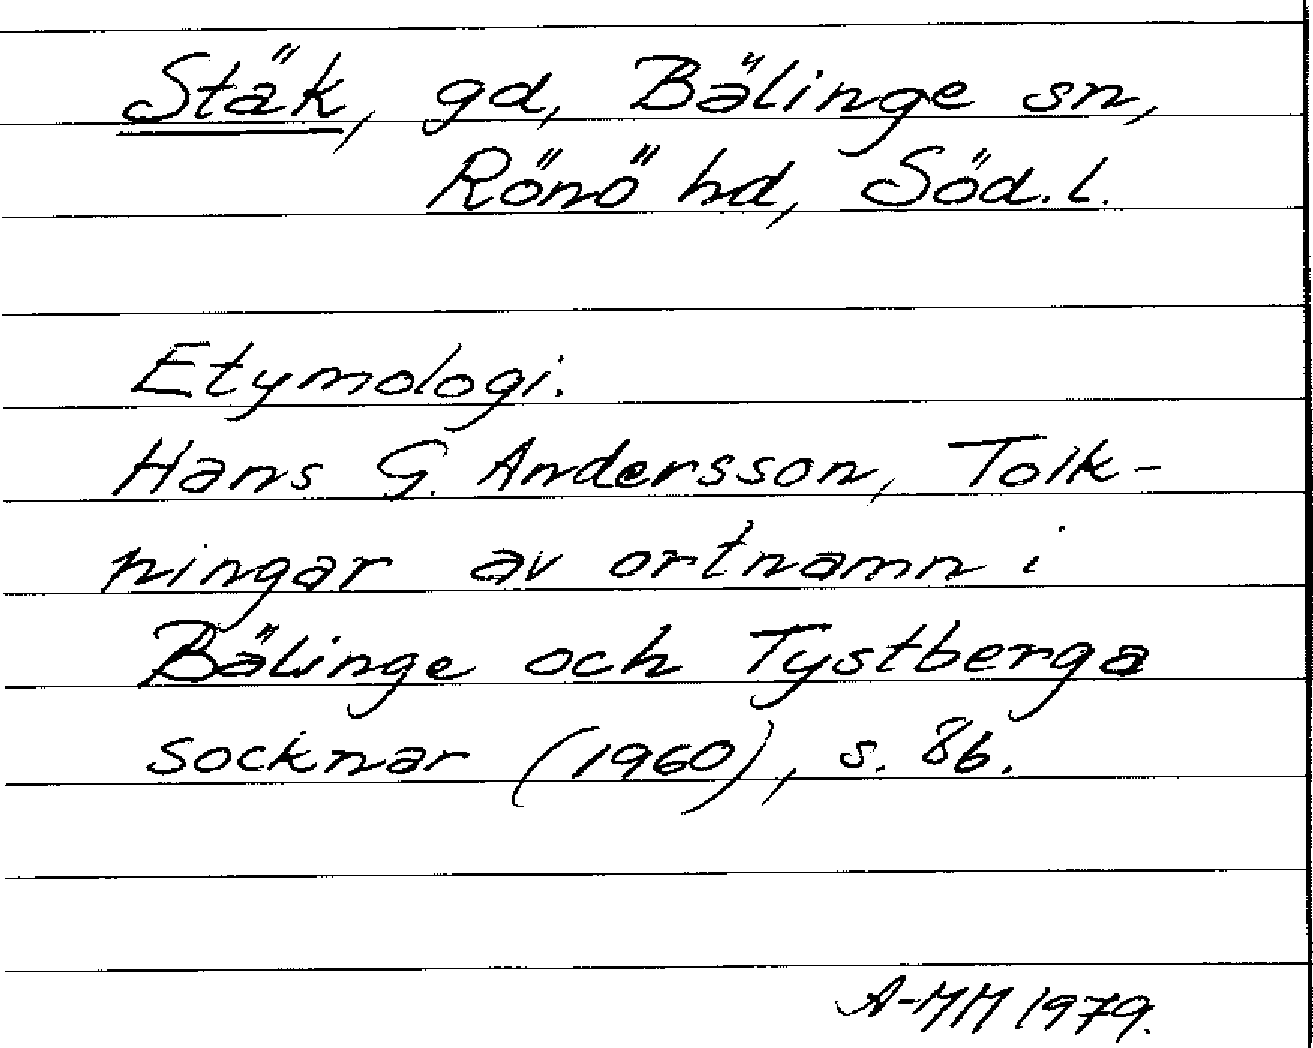 Stäk, gd, Bälinge sn,
Rönö hd, Söd.l.
Etymologi.
Hans G. Andersson, Tolk-
ningar av ortnamn i
Bälinge och Tystberga
socknar (1960), s. 86.
A-MM 1979.